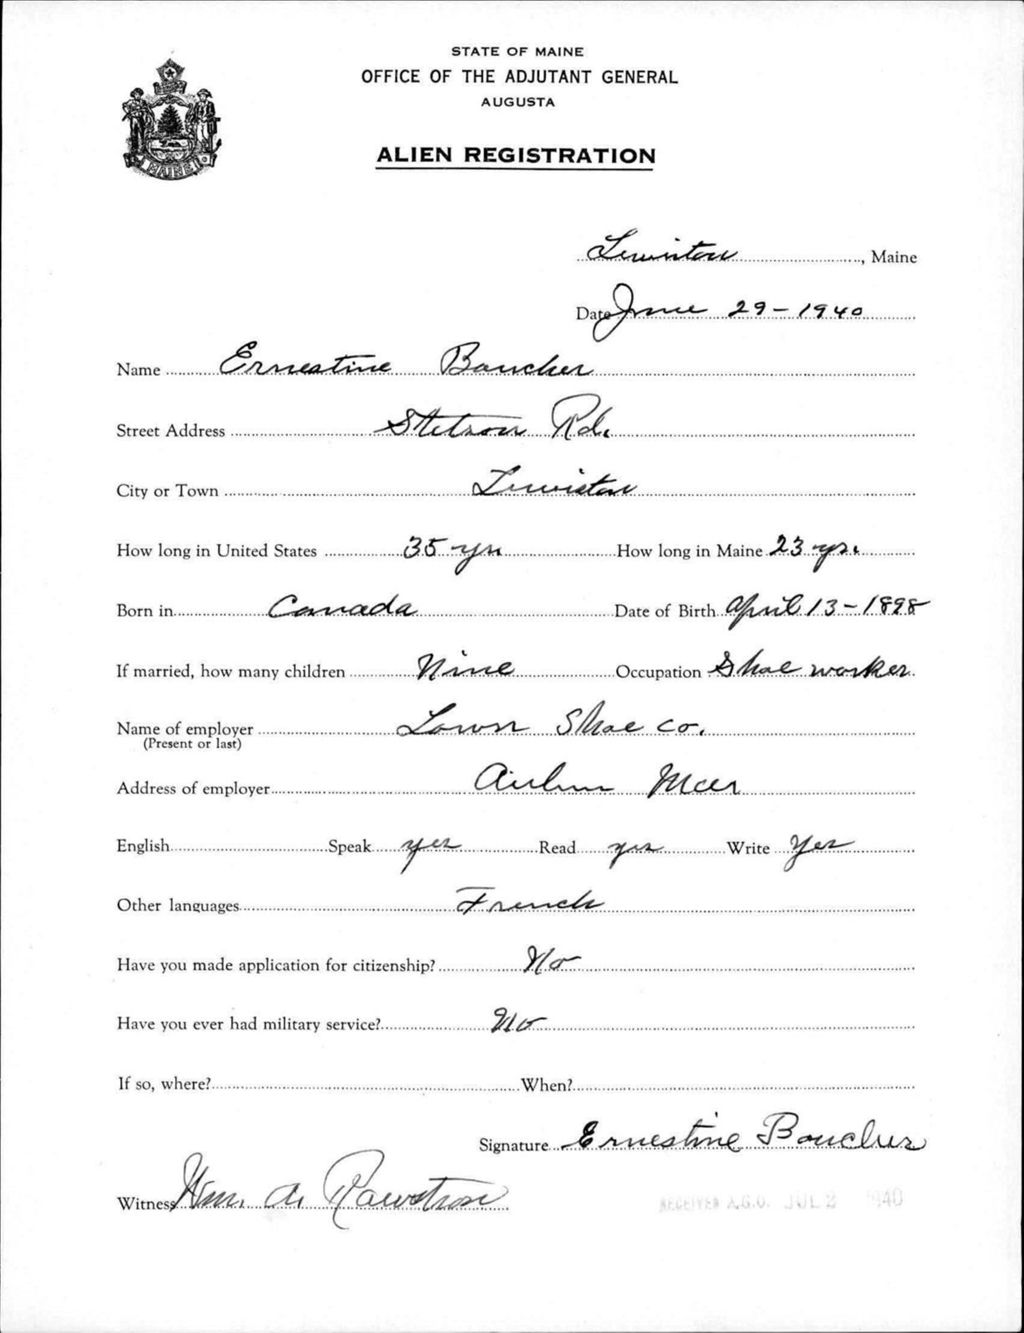 STATE OF MAINE
OFFICE OF THE ADJUTANT GENERAL
AUGUSTA
ALIEN REGISTRATION
MAINE
Lewiston, Maine
Date June 29-1940
Name Ernestine Boucher
Street Address Stetson Rd.
City or Town Lewiston
How long in United States 35 yrs How long in Maine 23 yrs.
Born in Canada Date of Birth April 13-1898
If married, how many children Nine Occupation Shoe worker
Name of employer Lown Shoe co.
(Present or last)
Address of employer Auburn
English Speak yes Read yes Write Yes
Other languages French
Have you made application for citizenship? No
Have you ever had military service? No
If so, where? When?
Signature Ernestine Boucher
Witness Wm. A. Rawstron
RECEIVED A.G.O. JUL 2 1940